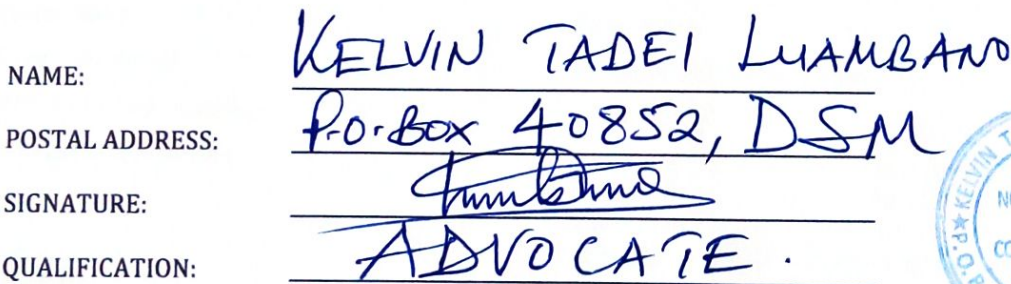 NAME: KELVIN TADEI LUAMBANO
POSTAL ADDRESS: P.O. BOX 40852, DSM
SIGNATURE:
QUALIFICATION: ADVOCATE.
KELVIN T
P.O.